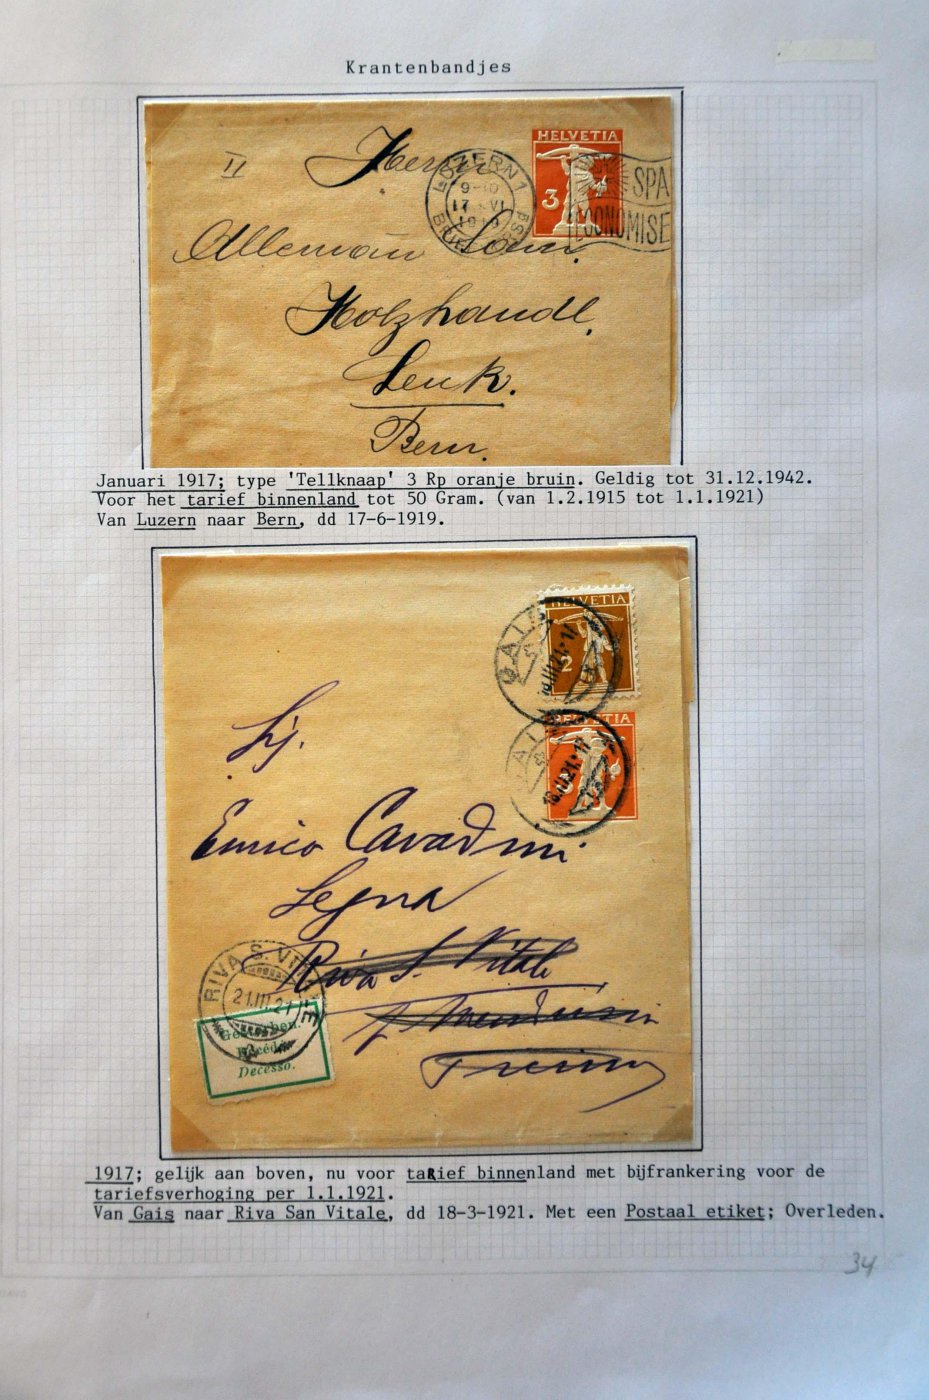 Krantenbandjes
HELVETIA
3
II
Herrn
LUZERN 1
9-10
17.VI
1919
SPA
ECONOMISE
Allemann Sohn.
Holzhandl.
Lenk.
Bern.
Januari 1917; type 'Tellknaap' 3 Rp oranje bruin. Geldig tot 31.12.1942.
Voor het tarief binnenland tot 50 Gram. (van 1.2.1915 tot 1.1.1921)
Van Luzern naar Bern, dd 17-6-1919.
HELVETIA
2
GAIS
18.III.21.-17
HELVETIA
GAIS
18.III.21.-17
Sig.
Enrico Cavadini
Segna
Riva S. Vitale
RIVA S. VITALE
21.III.21
Gestorben.
Décédé.
Decesso.
1917; gelijk aan boven, nu voor taRief binnenland met bijfrankering voor de
tariefsverhoging per 1.1.1921.
Van Gais naar Riva San Vitale, dd 18-3-1921. Met een Postaal etiket; Overleden.
34